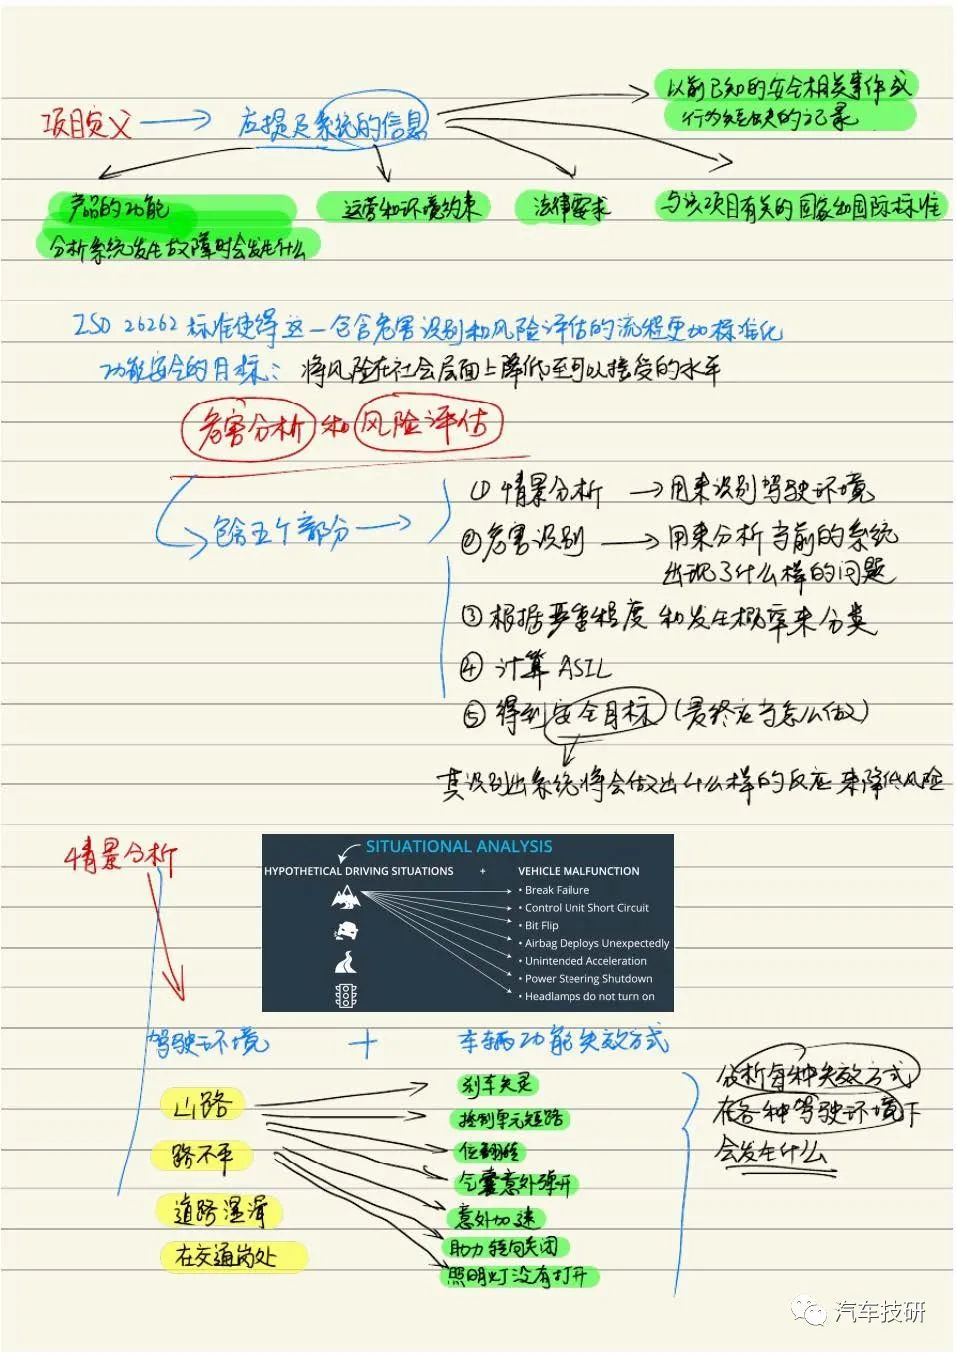 以前已知的安全相关事件或
行为缺失的记录
项目定义
应提及系统的信息
产品的功能
运营和环境约束
法律要求
与该项目有关的国家和国际标准
分析系统发生故障时会发生什么
ISO 26262标准使得这一包含危害识别和风险评估的流程更加标准化
功能安全的目标：将风险在社会层面上降低至可以接受的水平
危害分析和风险评估
包含五个部分
①情景分析
用来识别驾驶环境
②危害识别
用来分析当前的系统
出现了什么样的问题
③根据严重程度和发生概率来分类
④计算ASIL
⑤得到安全目标（最终应当怎么做）
其识别出系统将会做出什么样的反应来降低风险
情景分析
SITUATIONAL ANALYSIS
HYPOTHETICAL DRIVING SITUATIONS + VEHICLE MALFUNCTION
• Break Failure
• Control Unit Short Circuit
• Bit Flip
• Airbag Deploys Unexpectedly
• Unintended Acceleration
• Power Steering Shutdown
• Headlamps do not turn on
驾驶环境 + 车辆功能失效方式
山路
路不平
道路湿滑
在交通岗处
刹车失灵
控制单元短路
位翻转
气囊意外弹开
意外加速
助力转向关闭
照明灯没有打开
分析每种失效方式，
在各种驾驶环境下
会发生什么
汽车技研